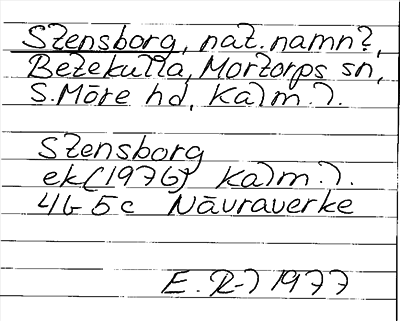 Stensborg, nat.namn?,
Bezekulla, Mortorps sn,
S. Möre hd, Kalm. l.
Stensborg
ek (1976) Kalm. l.
4G 5c Nävraverke
E. R-l 1977